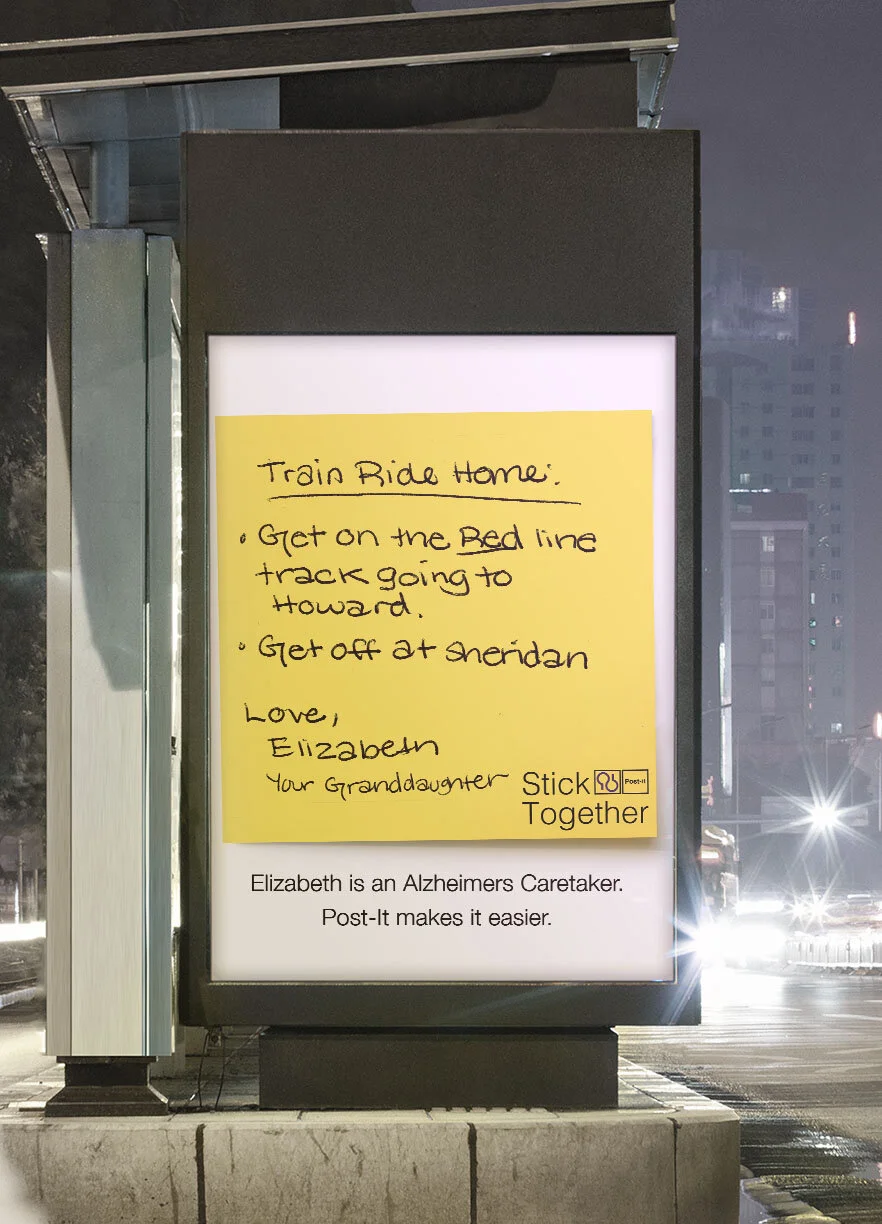 Train Ride Home:
• Get on the Red line
track going to
Howard.
• Get off at Sheridan
Love,
Elizabeth
Your Granddaughter
Stick Post-it
Together
Elizabeth is an Alzheimers Caretaker.
Post-It makes it easier.